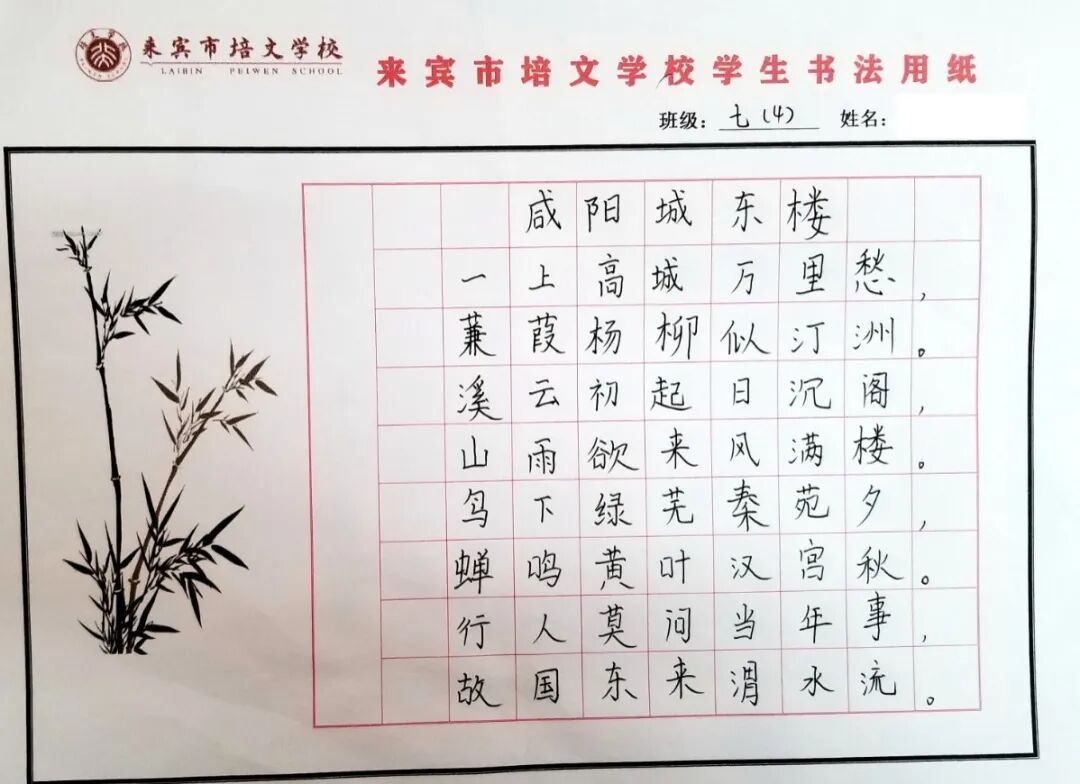 来宾市培文学校
LAIBIN PEIWEN SCHOOL
来宾市培文学校学生书法用纸
班级：七（4） 姓名：
咸阳城东楼
一上高城万里愁，
蒹葭杨柳似汀洲。
溪云初起日沉阁，
山雨欲来风满楼。
鸟下绿芜秦苑夕，
蝉鸣黄叶汉宫秋。
行人莫问当年事，
故国东来渭水流。